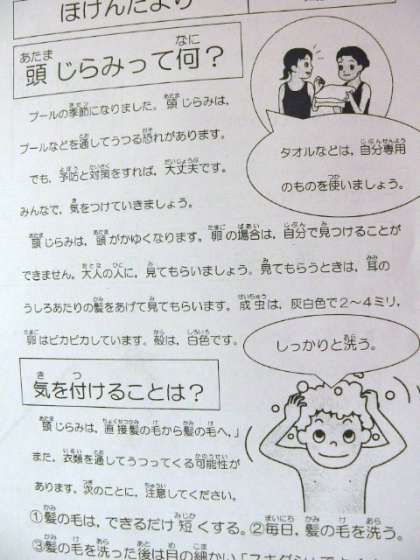 ほけんだより
頭じらみって何？
プールの季節になりました。頭じらみは、
プールなどを通してうつる恐れがあります。
でも、予防と対策をすれば、大丈夫です。
みんなで、気をつけていきましょう。
タオルなどは、自分専用
のものを使いましょう。
頭じらみは、頭がかゆくなります。卵の場合は、自分で見つけることが
できません。大人の人に、見てもらいましょう。見てもらうときは、耳の
うしろあたりの髪をあげて見てもらいます。成虫は、灰白色で2～4ミリ，
卵はピカピカしています。殻は、白色です。
しっかりと洗う。
気を付けることは？
頭じらみは、直接髪の毛から髪の毛へ，
また、衣類を通してうつってくる可能性が
あります。次のことに、注意してください。
①髪の毛は、できるだけ短くする。②毎日、髪の毛を洗う。
③髪の毛を洗った後は目の細かい「スキグシ」で